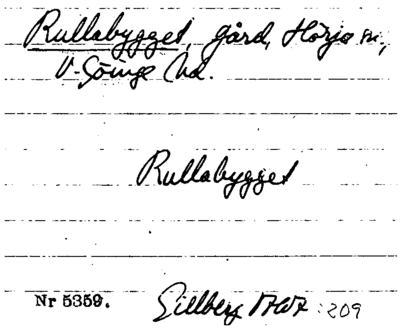 Rullabygget, gård, Hörja sn,
V-Göinge hd.
Rullabygget
Nr 5359. Gillberg :209